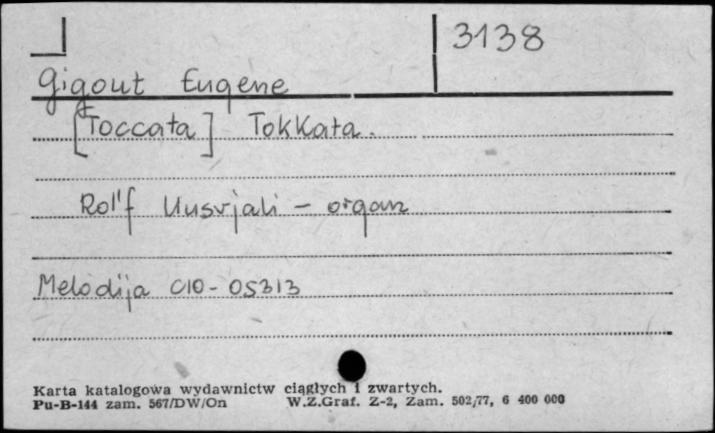 3138
Gigout Eugène
[Toccata] Tokkata.
Rol'f Uusvjali - organ
Melodija C10-05313
Karta katalogowa wydawnictw ciągłych i zwartych.
Pu-B-144 zam. 567/DW/On W.Z.Graf. Z-2, Zam. 502/77, 6 400 000